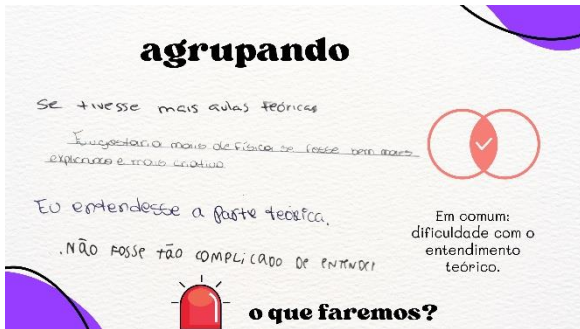 agrupando
se tivesse mais aulas teóricas
Eu gostaria mais de física se fosse bem mais
explicado e mais criativo
Eu entendesse a parte teórica.
. NÃO FOSSE TÃO COMPLICADO DE ENTENDER
Em comum:
dificuldade com o
entendimento
teórico.
o que faremos?